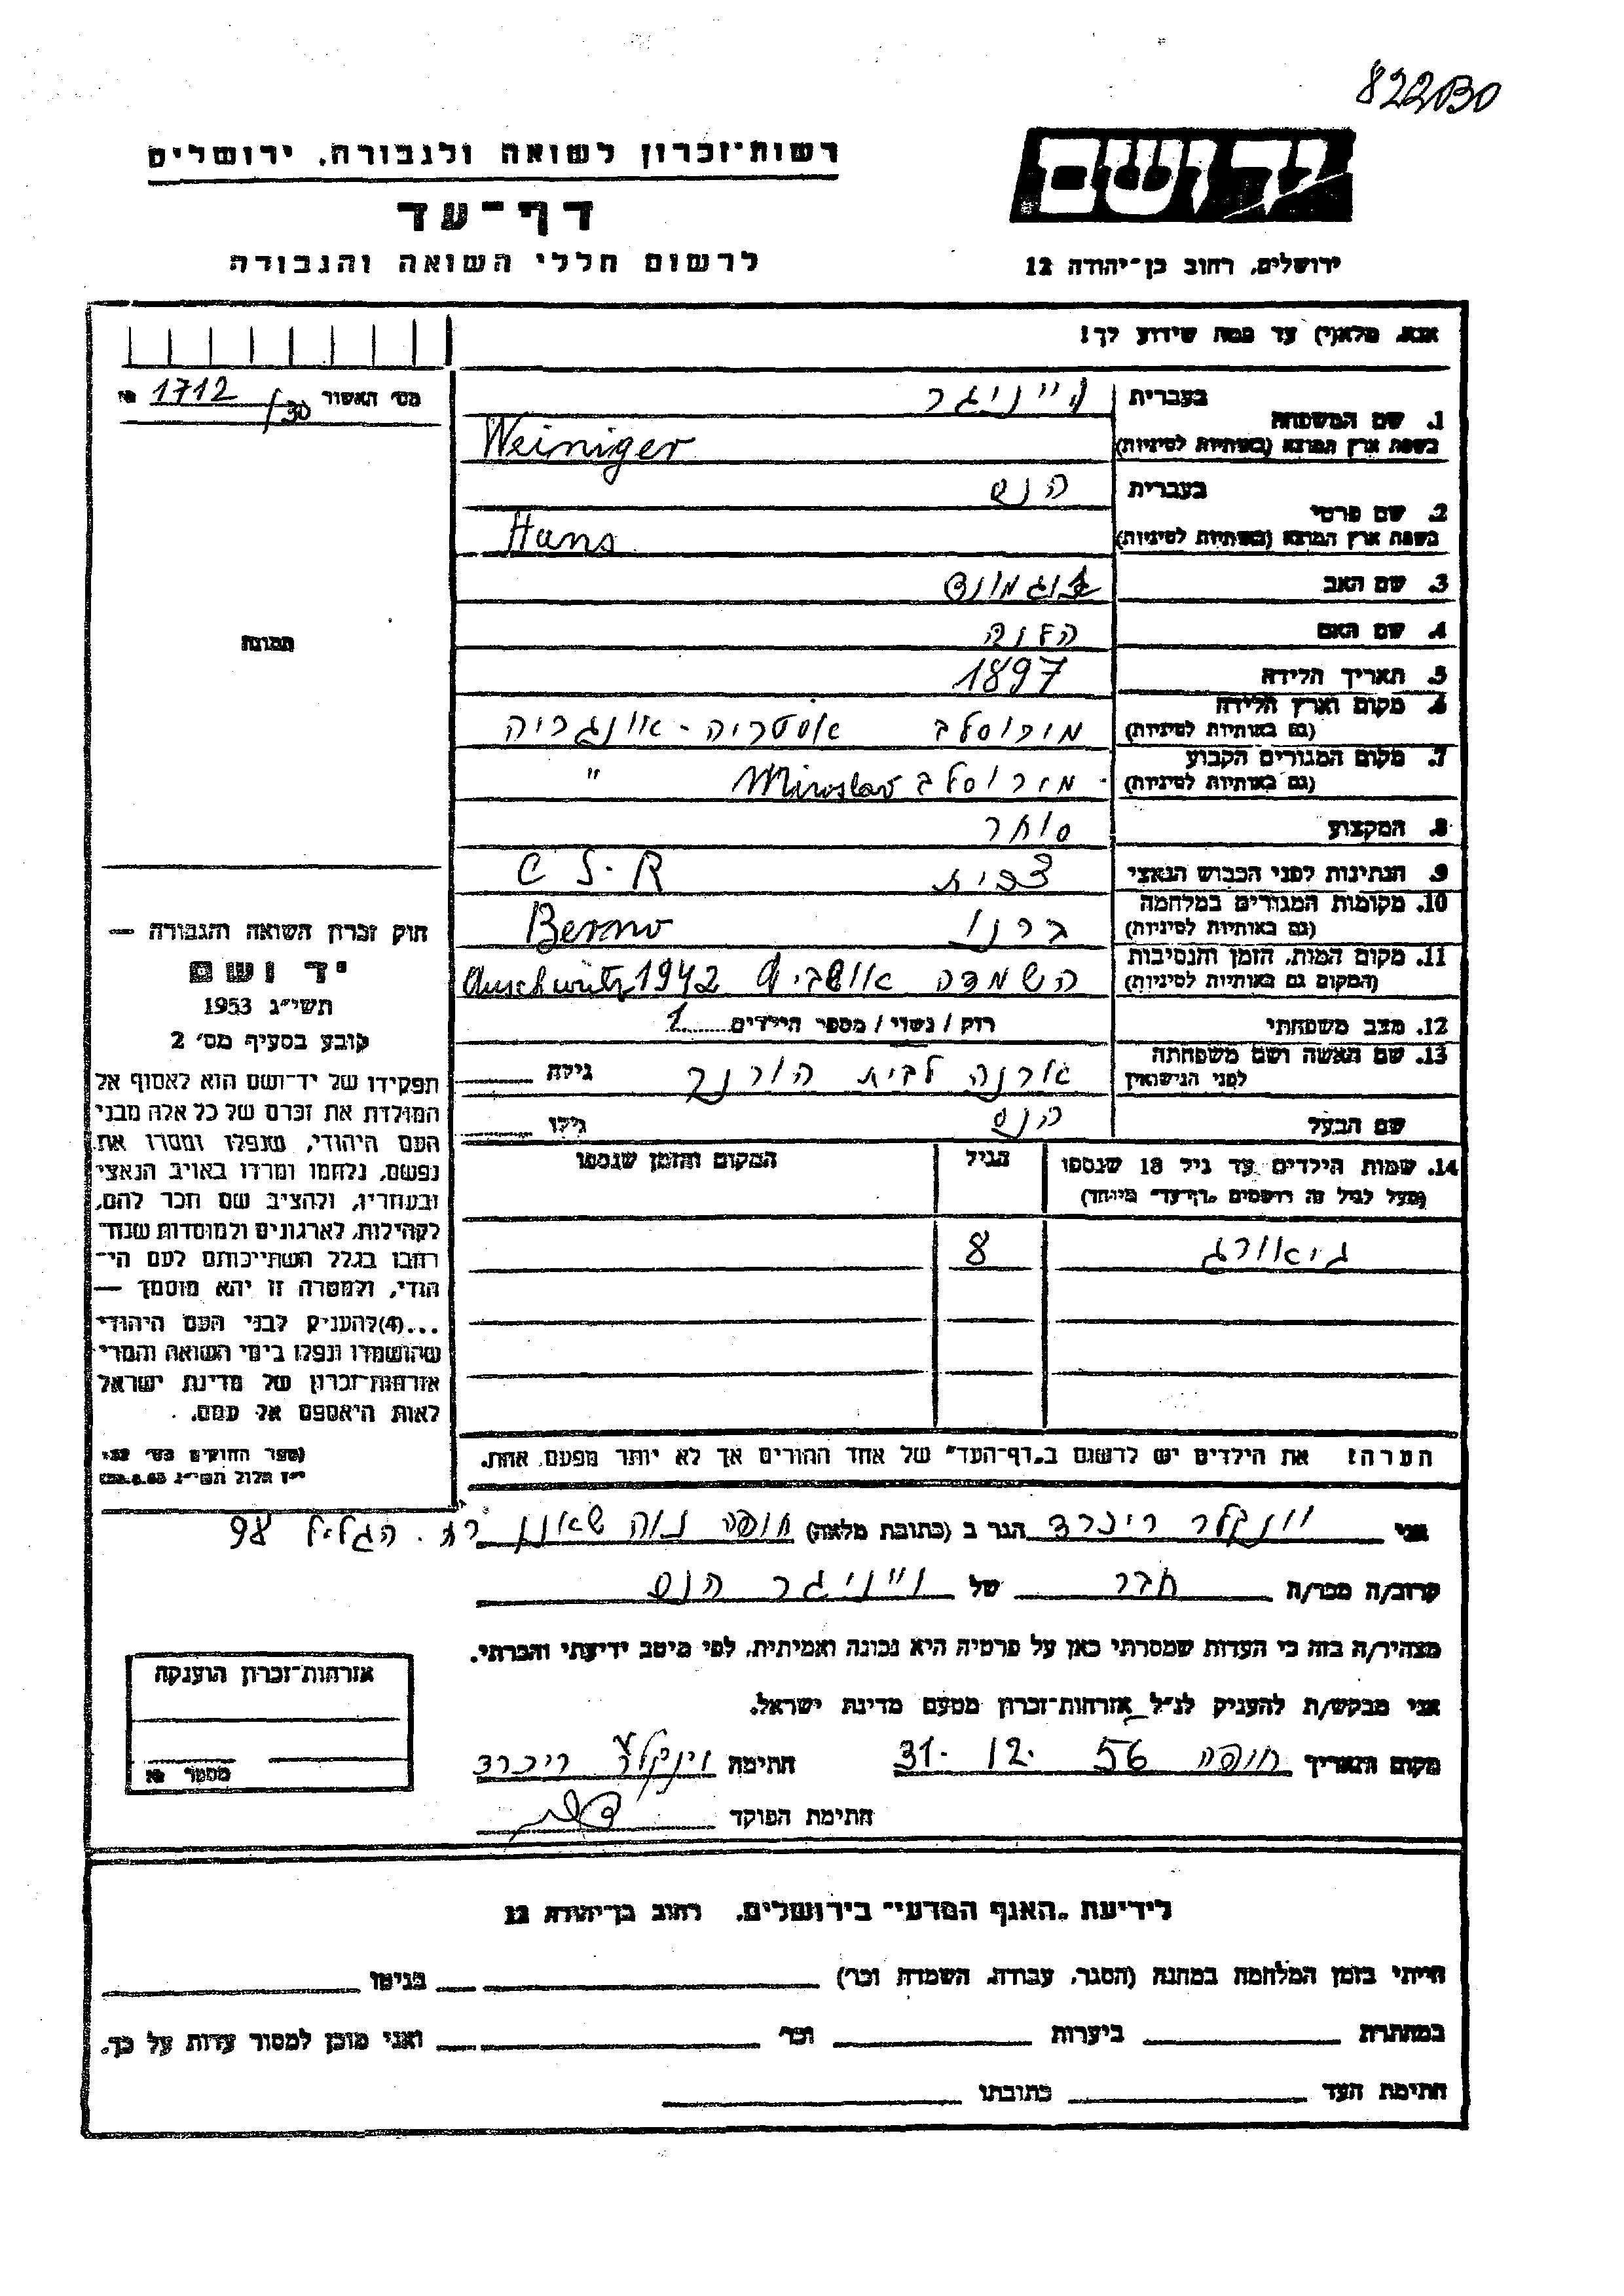 822B0
רשות־זכרון לשואה ולגבורה, ירושלים
יד ושם
דף־עד
לרשום חללי השואה והגבורה
ירושלים, רחוב בן־יהודה 12
אנא, מלא(י) עד כמה שידוע לך!
מס' האשור 1712/30 №
1. שם המשפחה
בעברית ויוניגר
בשפת ארץ המוצא (באותיות לטיניות) Weiniger
2. שם פרטי
בעברית הנס
בשפת ארץ המוצא (באותיות לטיניות) Hans
3. שם האב זיגמונד
4. שם האם
5. תאריך הלידה 1897
6. מקום וארץ הלידה
(גם באותיות לטיניות) מירוסלב אוסטריה - אונגריה
7. מקום המגורים הקבוע
(גם באותיות לטיניות) מירוסלב Miroslav "
8. המקצוע סוחר
9. הנתינות לפני הכבוש הנאצי צכית C S.R
10. מקומות המגורים במלחמה
(גם באותיות לטיניות) ברנו Berno
11. מקום המות, הזמן והנסיבות
(המקום גם באותיות לטיניות) השמדה אושביץ Auschwitz 1942
12. מצב משפחתי רוק / נשוי / מספר הילדים 1
13. שם האשה ושם משפחתה
לפני הנישואין לבית הורנר גילה
שם הבעל הנס גילו
14. שמות הילדים עד גיל 18 שנספו הגיל המקום והזמן שנספו
(מעל לגיל זה רושמים "דף־עד" מיוחד)
גיאורג 8
הערה: את הילדים יש לרשום ב"דף־העד" של אחד ההורים אך לא יותר מפעם אחת.
תמונה
חוק זכרון השואה והגבורה —
יד ושם
תשי"ג 1953
קובע בסעיף מס' 2
תפקידו של יד־ושם הוא לאסוף אל
המולדת את זכרם של כל אלה מבני
העם היהודי, שנפלו ומסרו את
נפשם, נלחמו ומרדו באויב הנאצי
ובעוזריו, ולהציב שם וזכר להם,
לקהילות, לארגונים ולמוסדות שנח־
רבו בגלל השתייכותם לעם הי־
הודי, ולמטרה זו יהא מוסמך —
...(4)להעניק לבני העם היהודי
שהושמדו ונפלו בימי השואה והמרי
אזרחות־זכרון של מדינת ישראל
לאות היאספם אל עמם.
(ספר החוקים מס' 132
י"ז אלול תשי"ג 28.8.53)
אני וינקלר ריכרד הגר ב (כתובת מלאה) חיפה נוה שאנן רח. הגליל 98
קרוב/ה מכר/ה חבר של ויוניגר הנס
מצהיר/ה בזה כי העדות שמסרתי כאן על פרטיה היא נכונה ואמיתית, לפי מיטב ידיעתי והכרתי.
אני מבקש/ת להעניק לנ"ל אזרחות־זכרון מטעם מדינת ישראל.
מקום ותאריך חיפה 31. 12. 56 חתימה וינקלר ריכרד
חתימת הפוקד
אזרחות־זכרון הוענקה
מספר №
לידיעת "האגף המדעי" בירושלים, רחוב בן־יהודה 12
הייתי בזמן המלחמה במחנה (הסגר, עבודה, השמדה וכו') בגיטו
במחתרת ביערות וכו' ואני מוכן למסור עדות על כך.
חתימת העד כתובתו